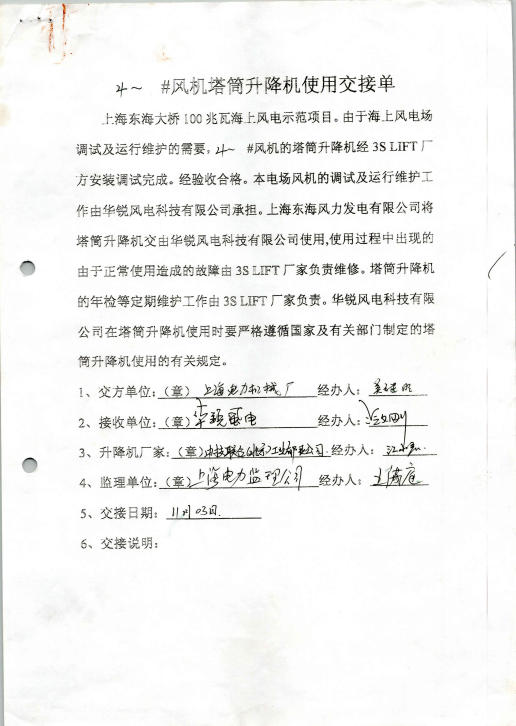 4~ #风机塔筒升降机使用交接单
上海东海大桥100兆瓦海上风电示范项目。由于海上风电场
调试及运行维护的需要，4~ #风机的塔筒升降机经3S LIFT厂
方安装调试完成。经验收合格。本电场风机的调试及运行维护工
作由华锐风电科技有限公司承担。上海东海风力发电有限公司将
塔筒升降机交由华锐风电科技有限公司使用,使用过程中出现的
由于正常使用造成的故障由3S LIFT厂家负责维修。塔筒升降机
的年检等定期维护工作由3S LIFT厂家负责。华锐风电科技有限
公司在塔筒升降机使用时要严格遵循国家及有关部门制定的塔
筒升降机使用的有关规定。
1、交方单位:（章）上海电力机械厂 经办人:
2、接收单位:（章）华锐风电 经办人:
3、升降机厂家:（章） 经办人:
4、监理单位:（章）上海电力监理公司 经办人:
5、交接日期: 11月03日.
6、交接说明: